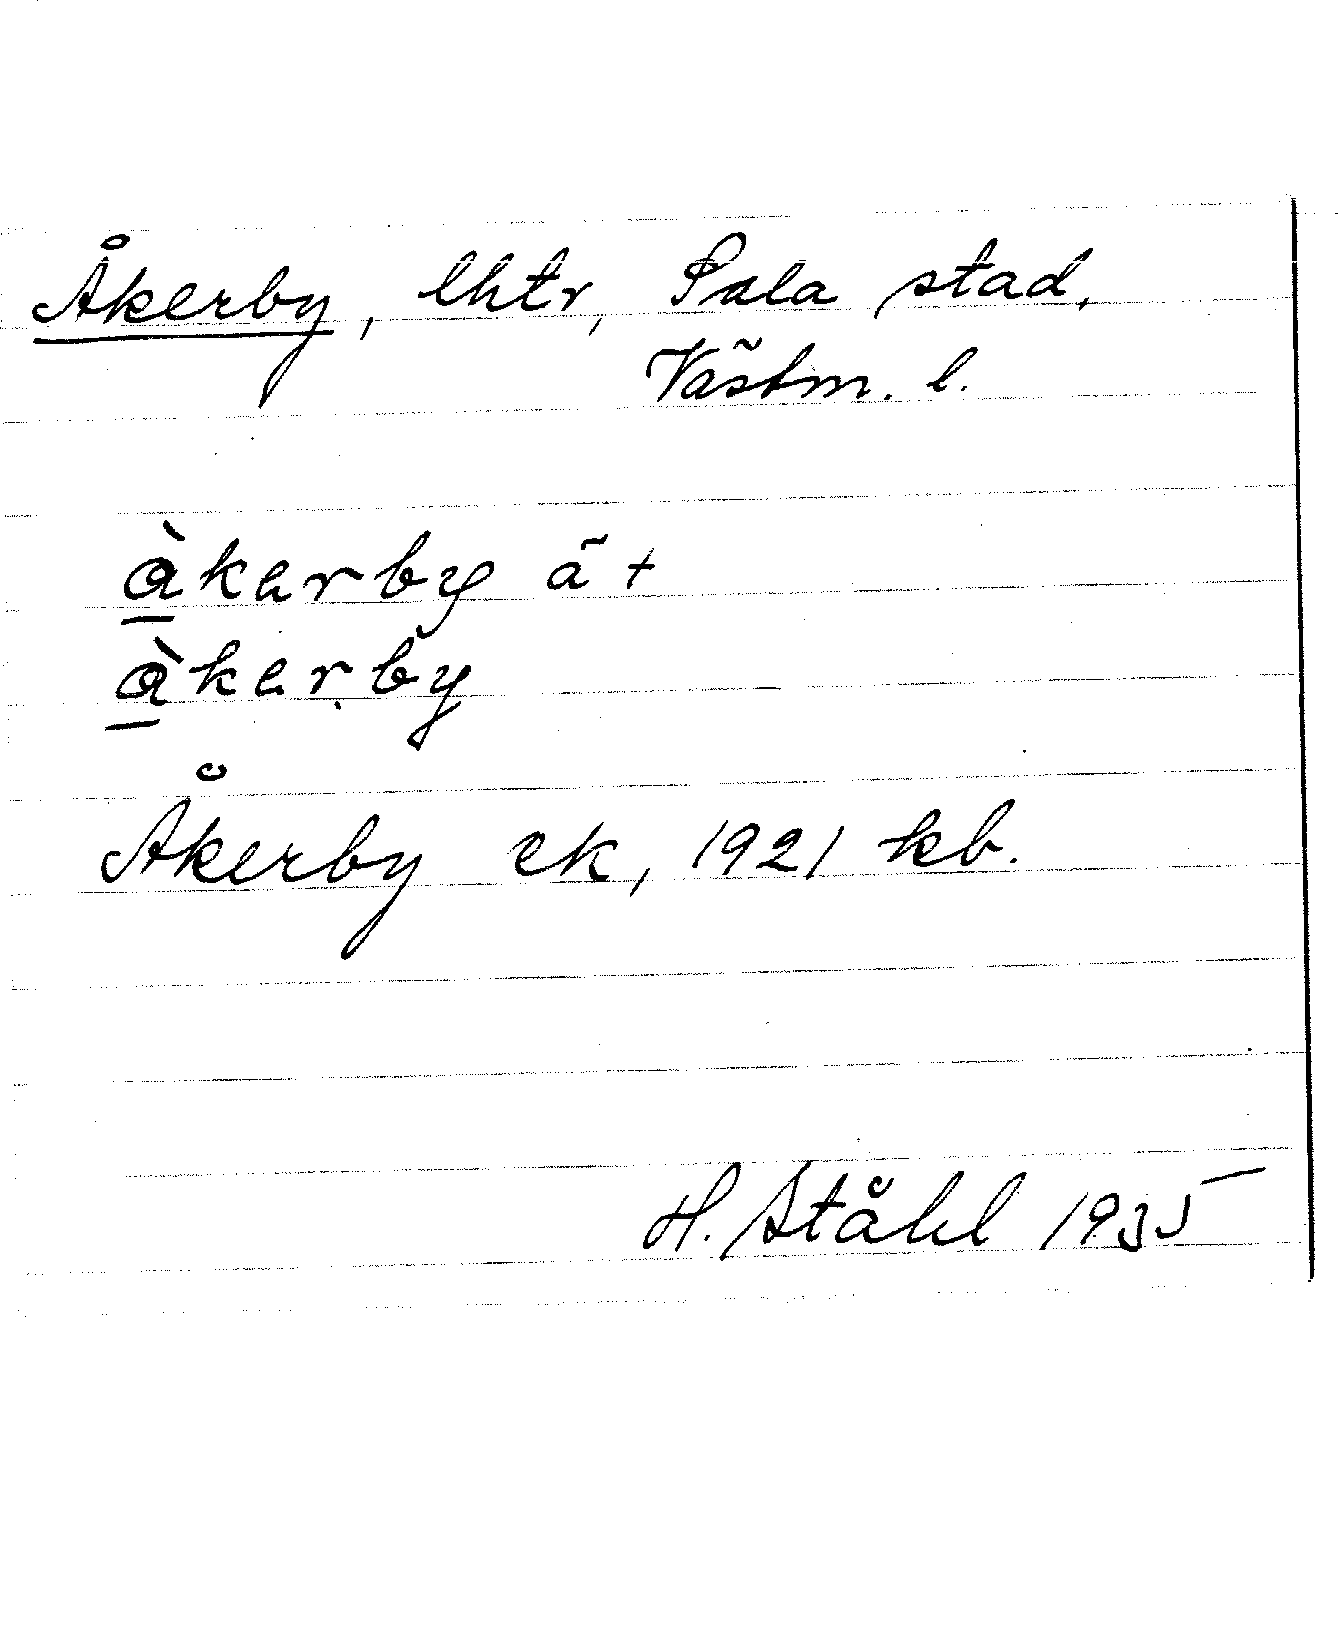 Åkerby, lhtr, Sala stad,
Västm. l.
àkerby ä +
àkerby
Åkerby ek, 1921 kb.
H. Ståhl 1935